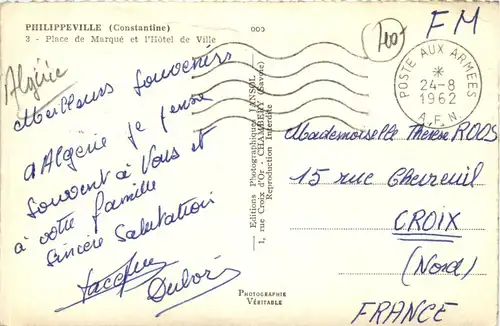 PHILIPPEVILLE (Constantine)
3 - Place de Marqué et l'Hôtel de Ville
Algérie
Meilleurs Souvenirs
d'Algérie je pense
souvent à Vous et
à votre famille
Sincère Salutation
Jacques
Dubois
Editions Photographiques JANSOL
1, rue Croix d'Or - CHAMBÉRY (Savoie)
Reproduction Interdite
PHOTOGRAPHIE
VÉRITABLE
FM
POSTE AUX ARMEES
*
24-8
1962
A.F.N.
Mademoiselle Thérèse ROOS
15 rue Chevreuil
CROIX
(Nord)
FRANCE